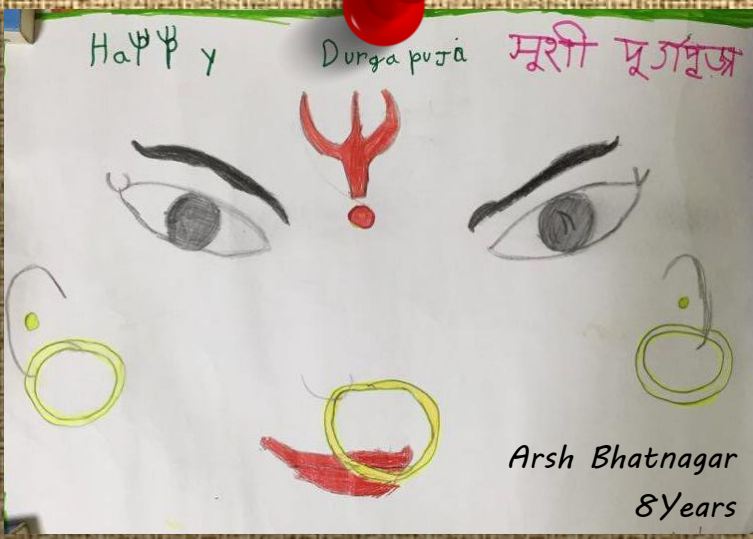 Happy Durga puja मूशी दूर्गापूजा
Arsh Bhatnagar
8Years